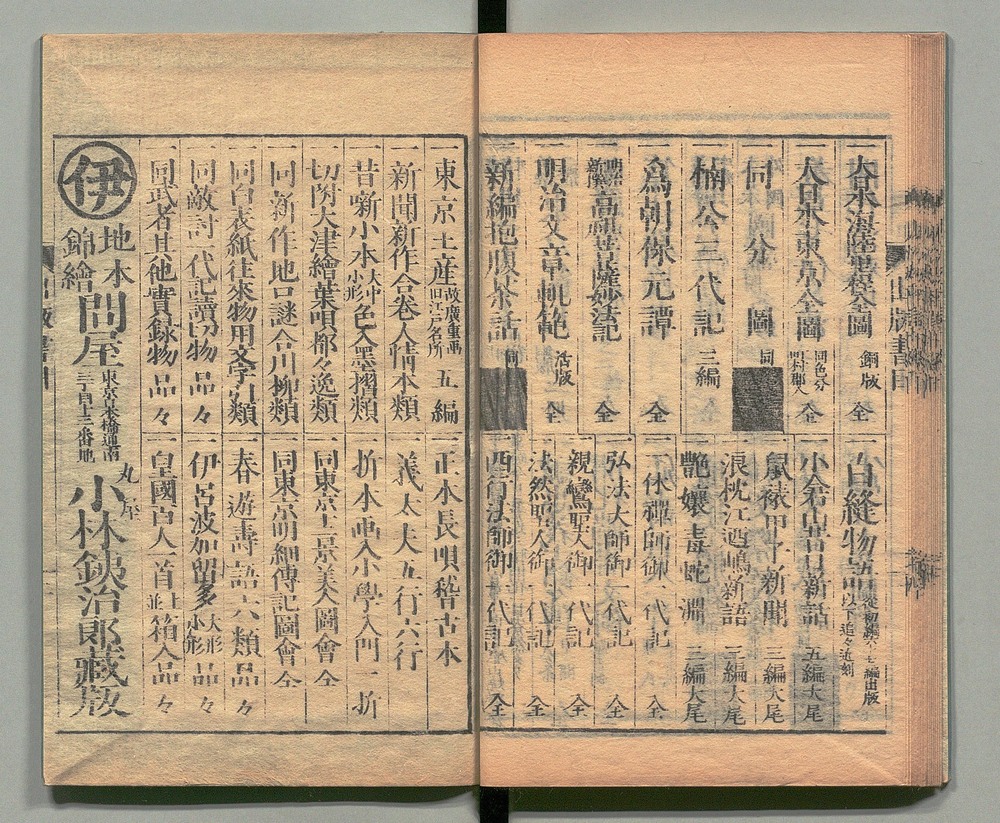 一大日本海陸里程全圖 銅版 全
一大日本東京全圖 同色分 町村郡入 全
一同 國分圖 同
一楠公三代記 三編 全
一爲朝保元譚 全
高祖日蓮菩薩妙法記 全
一明治文章軌範 活版 全
一新編抱腹茶話 同
一白縫物語 從初編六十七編出版 以下追々近刻
一小倉山青樹新話 五編大尾
一鼠祿甲子新聞 三編大尾
一浪枕江の嶋新語 三編大尾
一艶娘毒蛇淵 三編大尾
一一休禪師御一代記 全
一弘法大師御一代記 全
一親鸞聖人御一代記 全
一法然聖人御一代記 全
一西行法師御一代記 全
出版書目
一東京土産 故廣重画 旧江戸名所 五編
一新聞新作合卷人情本類
一昔噺小本 大中小形 色入墨摺類
一切附大津繪葉唄都々逸類
一同新作地口謎合川柳類
一同白表紙往來物用文字引類
一同敵討一代記讀切物 品々
一同武者其他實録物 品々
一正本長唄稽古本
一義太夫五行六行
一折本画入小學入門 一折
一同東京土景美人圖會 全
一同東京明細傳記圖會 全
一春遊壽語六類 品々
一伊呂波加留多 大形小形 品々
一皇國百人一首 上並 箱入品々
伊
地本
錦繪
問屋
東京日本橋通南
三丁目十三番地
丸屋
小林鐵治郎藏版